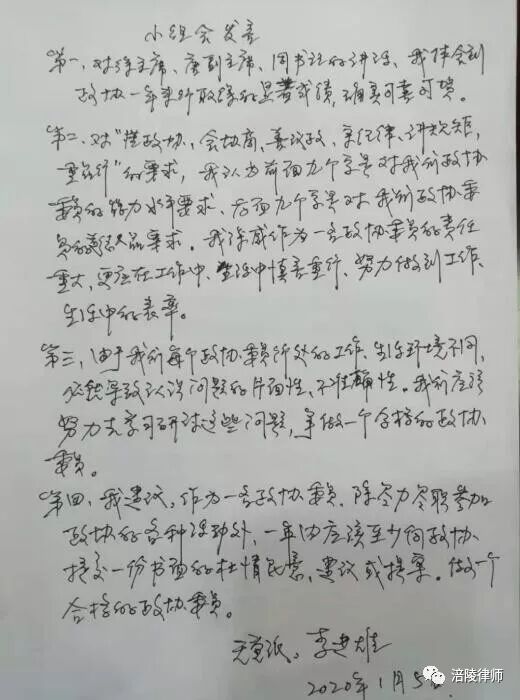 小组会发言
第一、对徐主席、唐副主席、周书记的讲话，我体会到
政协一年来所取得的显著成绩，确实可喜可贺。
第二、对“懂政协、会协商、善议政、守纪律、讲规矩、
重品行”的要求，我认为前面九个字是对我们政协
委员的能力水平要求，后面九个字是对我们政协委
员的品要求。我深感作为一名政协委员的责任
重大，更应在工作中、生活中慎言重行、努力做到工作、
生活中的表率。
第三、由于我们每个政协委员所处的工作、生活环境不同，
必然导致认识问题的片面性、不准确性。我们应该
努力去学习研讨这些问题，争做一个合格的政协
委员。
第四、我建议，作为一名政协委员，除尽力尽职参加
政协的各种活动外，一年内应该至少向政协
提交一份书面的社情民意、建议或提案。做一个
合格的政协委员。
李进雄
2020年1月5日
涪陵律师